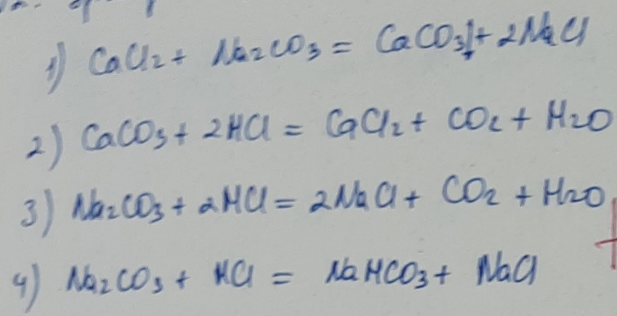 1) CaCl2 + Na2CO3 = CaCO3↓ + 2NaCl
2) CaCO3 + 2HCl = CaCl2 + CO2 + H2O
3) Na2CO3 + 2HCl = 2NaCl + CO2 + H2O
4) Na2CO3 + HCl = NaHCO3 + NaCl